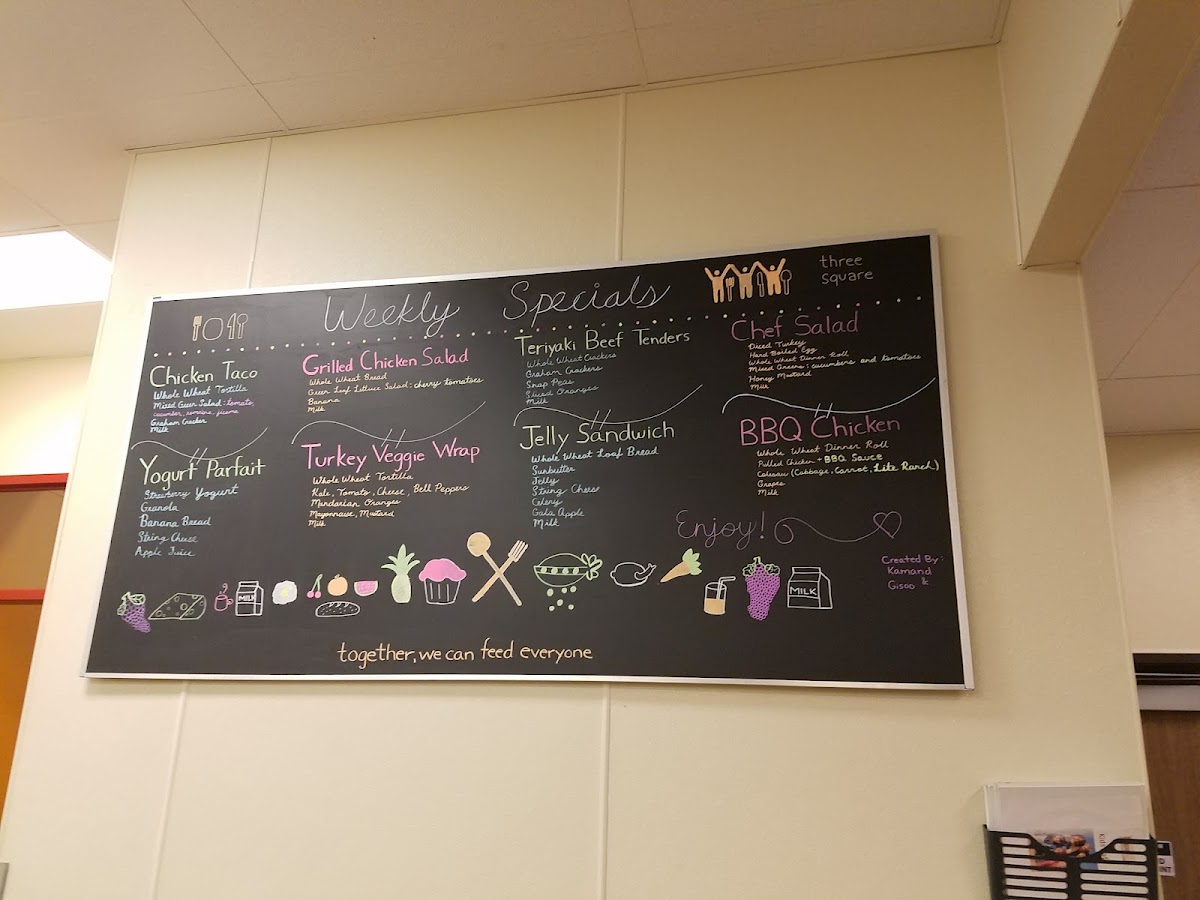 Weekly Specials
three
square
Chicken Taco
Whole Wheat Tortilla
Mixed Green Salad: tomato,
cucumber, romaine, jicama
Graham Cracker
Milk
Grilled Chicken Salad
Whole Wheat Bread
Green Leaf Lettuce Salad: cherry tomatoes
Banana
Milk
Teriyaki Beef Tenders
Whole Wheat Crackers
Graham Crackers
Snap Peas
Sliced Oranges
Milk
Chef Salad
Diced Turkey
Hard Boiled Egg
Whole Wheat Dinner Roll
Mixed Greens: cucumbers and tomatoes
Honey Mustard
Milk
Yogurt Parfait
Strawberry Yogurt
Granola
Banana Bread
String Cheese
Apple Juice
Turkey Veggie Wrap
Whole Wheat Tortilla
Kale, Tomato, Cheese, Bell Peppers
Mandarian Oranges
Mayonnaise, Mustard
Milk
Jelly Sandwich
Whole Wheat Loaf Bread
Sunbutter
Jelly
String Cheese
Celery
Gala Apple
Milk
BBQ Chicken
Whole Wheat Dinner Roll
Pulled Chicken + BBQ Sauce
Coleslaw (Cabbage, Carrot, Lite Ranch)
Grapes
Milk
Enjoy!
Created By:
Kamand
Gisoo
MILK
MILK
together, we can feed everyone